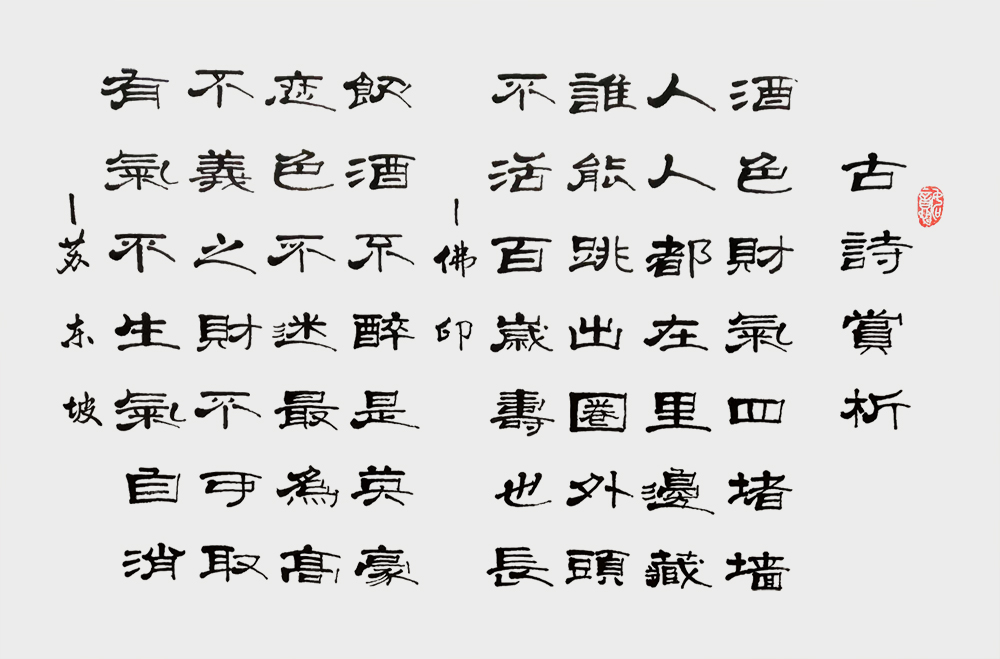 古詩賞析
酒色財氣四堵墙
人人都在里邊藏
誰能跳出圈外頭
不活百歲壽也長
—佛印
飲酒不醉是英豪
恋色不迷最為高
不義之財不可取
有氣不生氣自消
—苏东坡